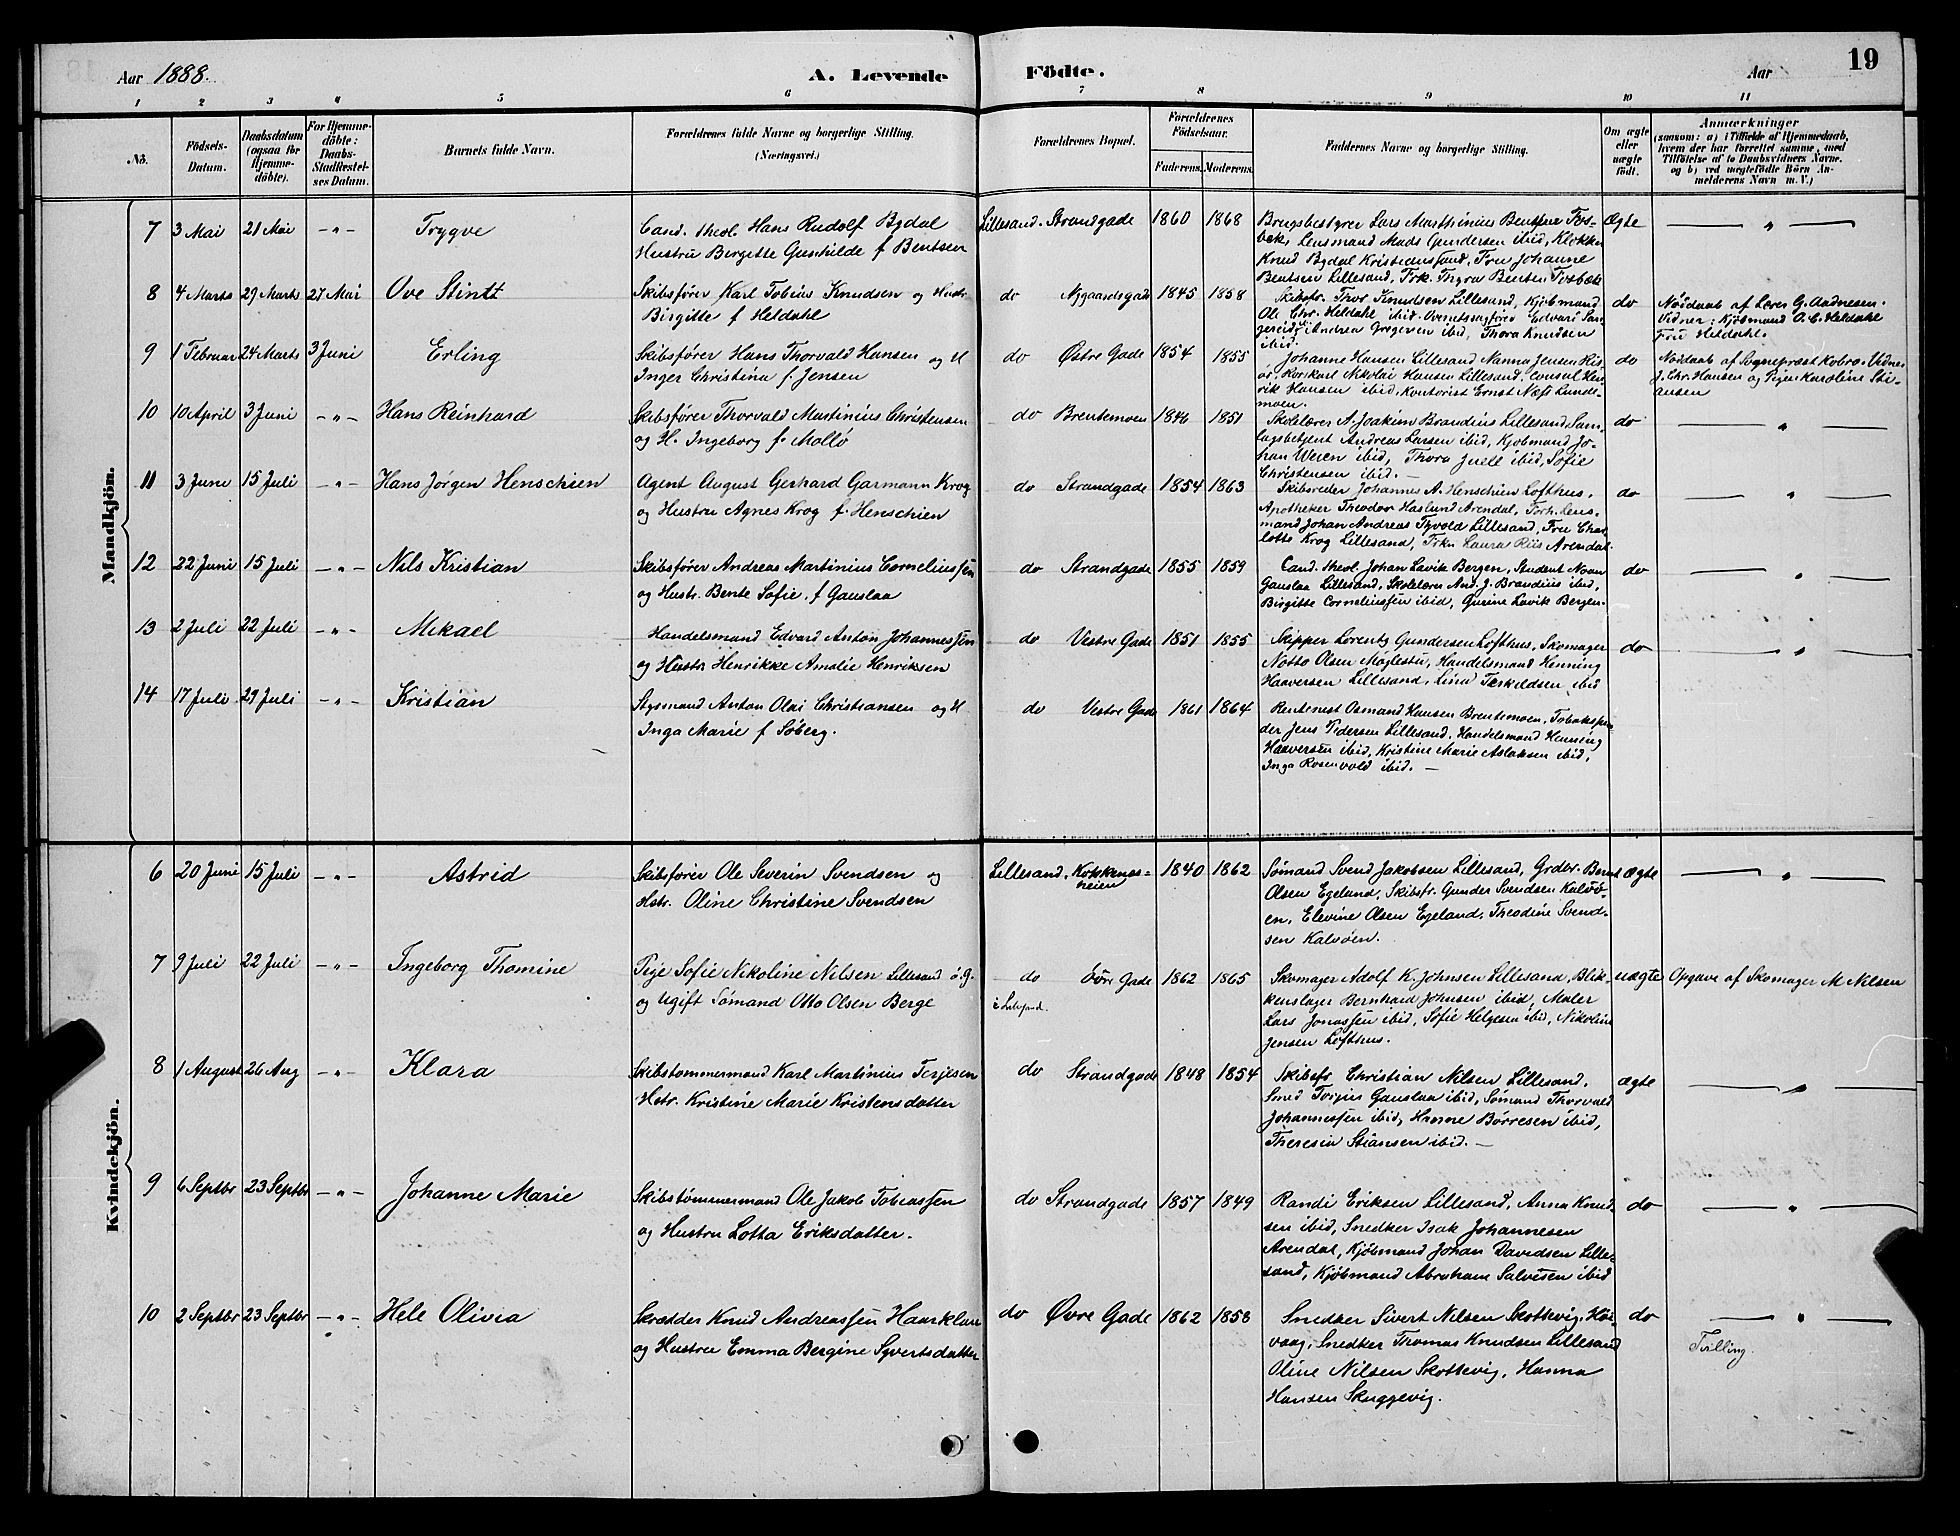 Aar 1888.
A. Levende
Fødte.
Aar
19
1 2 3 4 5 6 7 8 9 10 11
No.
Födsels-Datum.
Daabsdatum (ogsaa for Hjemme-döbte).
For Hjemme-döbte: Daabs-Stadfæstel-ses Datum.
Barnets fulde Navn.
Forældrenes fulde Navne og borgerlige Stilling.
(Næringsvei.)
Forældrenes Bopæl.
Forældrenes Födselsaar.
Faderens. Moderens.
Faddernes Navne og borgerlige Stilling.
Om ægte eller uægte födt.
Anmærkninger
(saasom: a) i Tilfælde af Hjemmedaab,
hvem der har forrettet samme, med
Tilföielse af to Daabsvidners Navne.
og b) ved uægtefödte Börn An-
melderens Navn m. V.)
Mandkjön.
7 3 Mai 21 Mai -"- Trygve
Cand. theol. Hans Rudolf Bydal
Hustru Birgitte Gunhilde f Bentsen
Lillesand. Strandgade 1860 1868
Brugsbestyrer Lars Marthinius Bentsen
Lensmand Mads Gundersen ibid, Klokker
Knud Bydal Kristianssand, Fru Johanne
Bentsen Lillesand, Frk. Thyra Bentsen
Ægte "
8 4 Marts 29 Marts 27 Mai Ove Stindt
Skibsfører Karl Tobias Knudsen og Hustr
Birgitte f Heldahl
do Nygaardsgade 1845 1858
Skibsfr. Thor Knudsen Lillesand, Kjøbmand
Ole Chr. Heldahl ibid. Edvard
Andrea Gregersen ibid, Thora Knudsen
ibid.
do
Nøddaab af Lærer G. Aadnesen.
Vidner: Kjøbmand O. C. Heldahl
Fru Heldahl.
9 1 Februar 24 Marts 3 Juni Erling
Skibsfører Hans Thorvald Hansen og H
Inger Christina f. Jensen
do Østre Gade 1854 1855
Johanne Hansen Lillesand Nanna Jensen Ris-
ør, Nikolai Hansen Lillesand, Consul Hen-
rik Hansen ibid, Kontorist Ernst Næss Lunde-
moen.
do
Nøddaab af Sognepræst Kobro. Vidner
J. Chr. Hansen og Pige Karoline Sti-
ansen
10 10 April 3 Juni -"- Hans Reinhard
Skibsfører Thorvald Martinius Christensen
og H. Ingeborg f. Mollø
do Brentemoen 1846 1851
Skolelærer A. Joakim Brandius Lillesand, Sam-
lagsbetjent Andreas Larsen ibid, Kjøbmand Jo-
han Weien ibid, Thora Juell ibid, Sofie
Christensen ibid. —
do "
11 3 Juni 15 Juli -"- Hans Jørgen Henschien
Agent August Gerhard Garmann Krog
og Hustru Agnes Krog f. Henschien
do Strandgade 1854 1863
Skibsreder Johannes A. Henschien Lofthus.
Apotheker Theodor Haslund Arendal, Forh. Lens-
mand Johan Andreas Tyvold Lillesand, Fru Char-
lotte Krog Lillesand, Frkn Laura Riis Arendal.
do "
12 22 Juni 15 Juli -"- Nils Kristian
Skibsfører Andreas Martinius Corneliussen
og Hustr. Bente Sofie, f Gauslaa
do Strandgade 1855 1859
Cand. theol. Johan Lavik Bergen, Student Noan
Gauslaa Lillesand, Skolelærer And. J. Brandius ibid,
Birgitte Corneliussen ibid, Gurine Lavik Bergen.
do "
13 2 Juli 22 Juli -"- Mikael
Handelsmand Edvard Anton Johannessen
og Hustr Henrikke Amalie Henriksen
do Vestre Gade 1851 1855
Skipper Lorentz Gundersen Lofthus, Skomager
Notto Olsen Møglestu, Handelsmand Henning
Haaversen Lillesand, Lina Terkeldsen ibid
do "
14 17 Juli 29 Juli -"- Kristian
Stysmand Anton Olai Christiansen og H
Inga Marie f Søberg.
do Vestre Gade 1861 1864
Rentenist Osmand Hansen Brentemoen, Tobakspin-
der Jens Pedersen Lillesand, Handelsmand Henning
Haaversen ibid, Kristine Marie Aslaksen ibid,
Inga Rosenvold ibid. —
Kvindekjön.
6 20 Juni 15 Juli -"- Astrid
Skibsfører Ole Severin Svendsen og
Hstr. Oline Christine Svendsen
Lillesand, Kokkenes-
heien 1840 1862
Sømand Svend Jakobsen Lillesand, Grdbr. Bernt
Olsen Egeland, Skibsfr. Gunder Svendsen Kalvø-
en, Elevine Olsen Egeland, Theodine Svend-
sen Kalvøen.
ægte "
7 9 Juli 22 Juli -"- Ingeborg Thomine
Pige Sofie Nikoline Nilsen Lillesand ø.G.
og Ugift Sømand Otto Olsen Berge
do Øvre Gade 1862 1865
Skomager Adolf K. Johnsen Lillesand, Blik-
kenslager Bernhard Johnsen ibid, Maler
Lars Jonassen ibid, Sofie Helgesen ibid, Nikoline
Jensen Lofthus.
uægte Opgave af Skomager M Nilsen
8 1 August 26 Aug -"- Klara
Skibstømmermand Karl Martinius Terjesen
Hstr. Kristine Marie Kristensdatter
do Strandgade 1848 1854
Skibsfr. Christian Nilsen Lillesand,
Smed Torjus Gauslaa ibid, Sømand Thorvald
Johannessen ibid, Hanne Børresen ibid,
Theresia Stiansen ibid. —
ægte "
9 6 Septbr 23 Septbr -"- Johanne Marie
Skibstømmermand Ole Jakob Tobiassen
og Hustru Lotta Eriksdatter.
do Strandgade 1857 1849
Randi Eriksen Lillesand, Anna Knud-
sen ibid, Snedker Isak Johannesen
Arendal, Kjøbmand Johan Davidsen Lille-
sand, Kjøbmand Abraham Salvesen ibid
do "
10 2 Septbr 23 Septbr -"- Hele Olivia
Skrædder Knud Andreassen Haarklau
og Hustru Emma Bergine Syvertsdatter
do Øvre Gade 1862 1858
Snedker Sivert Nilsen Skottevig, Høi-
vaag, Snedker Thomas Knudsen Lillesand
Oline Nilsen Skottevig, Hanna
Hansen Skuggevig.
do "
Tvilling.